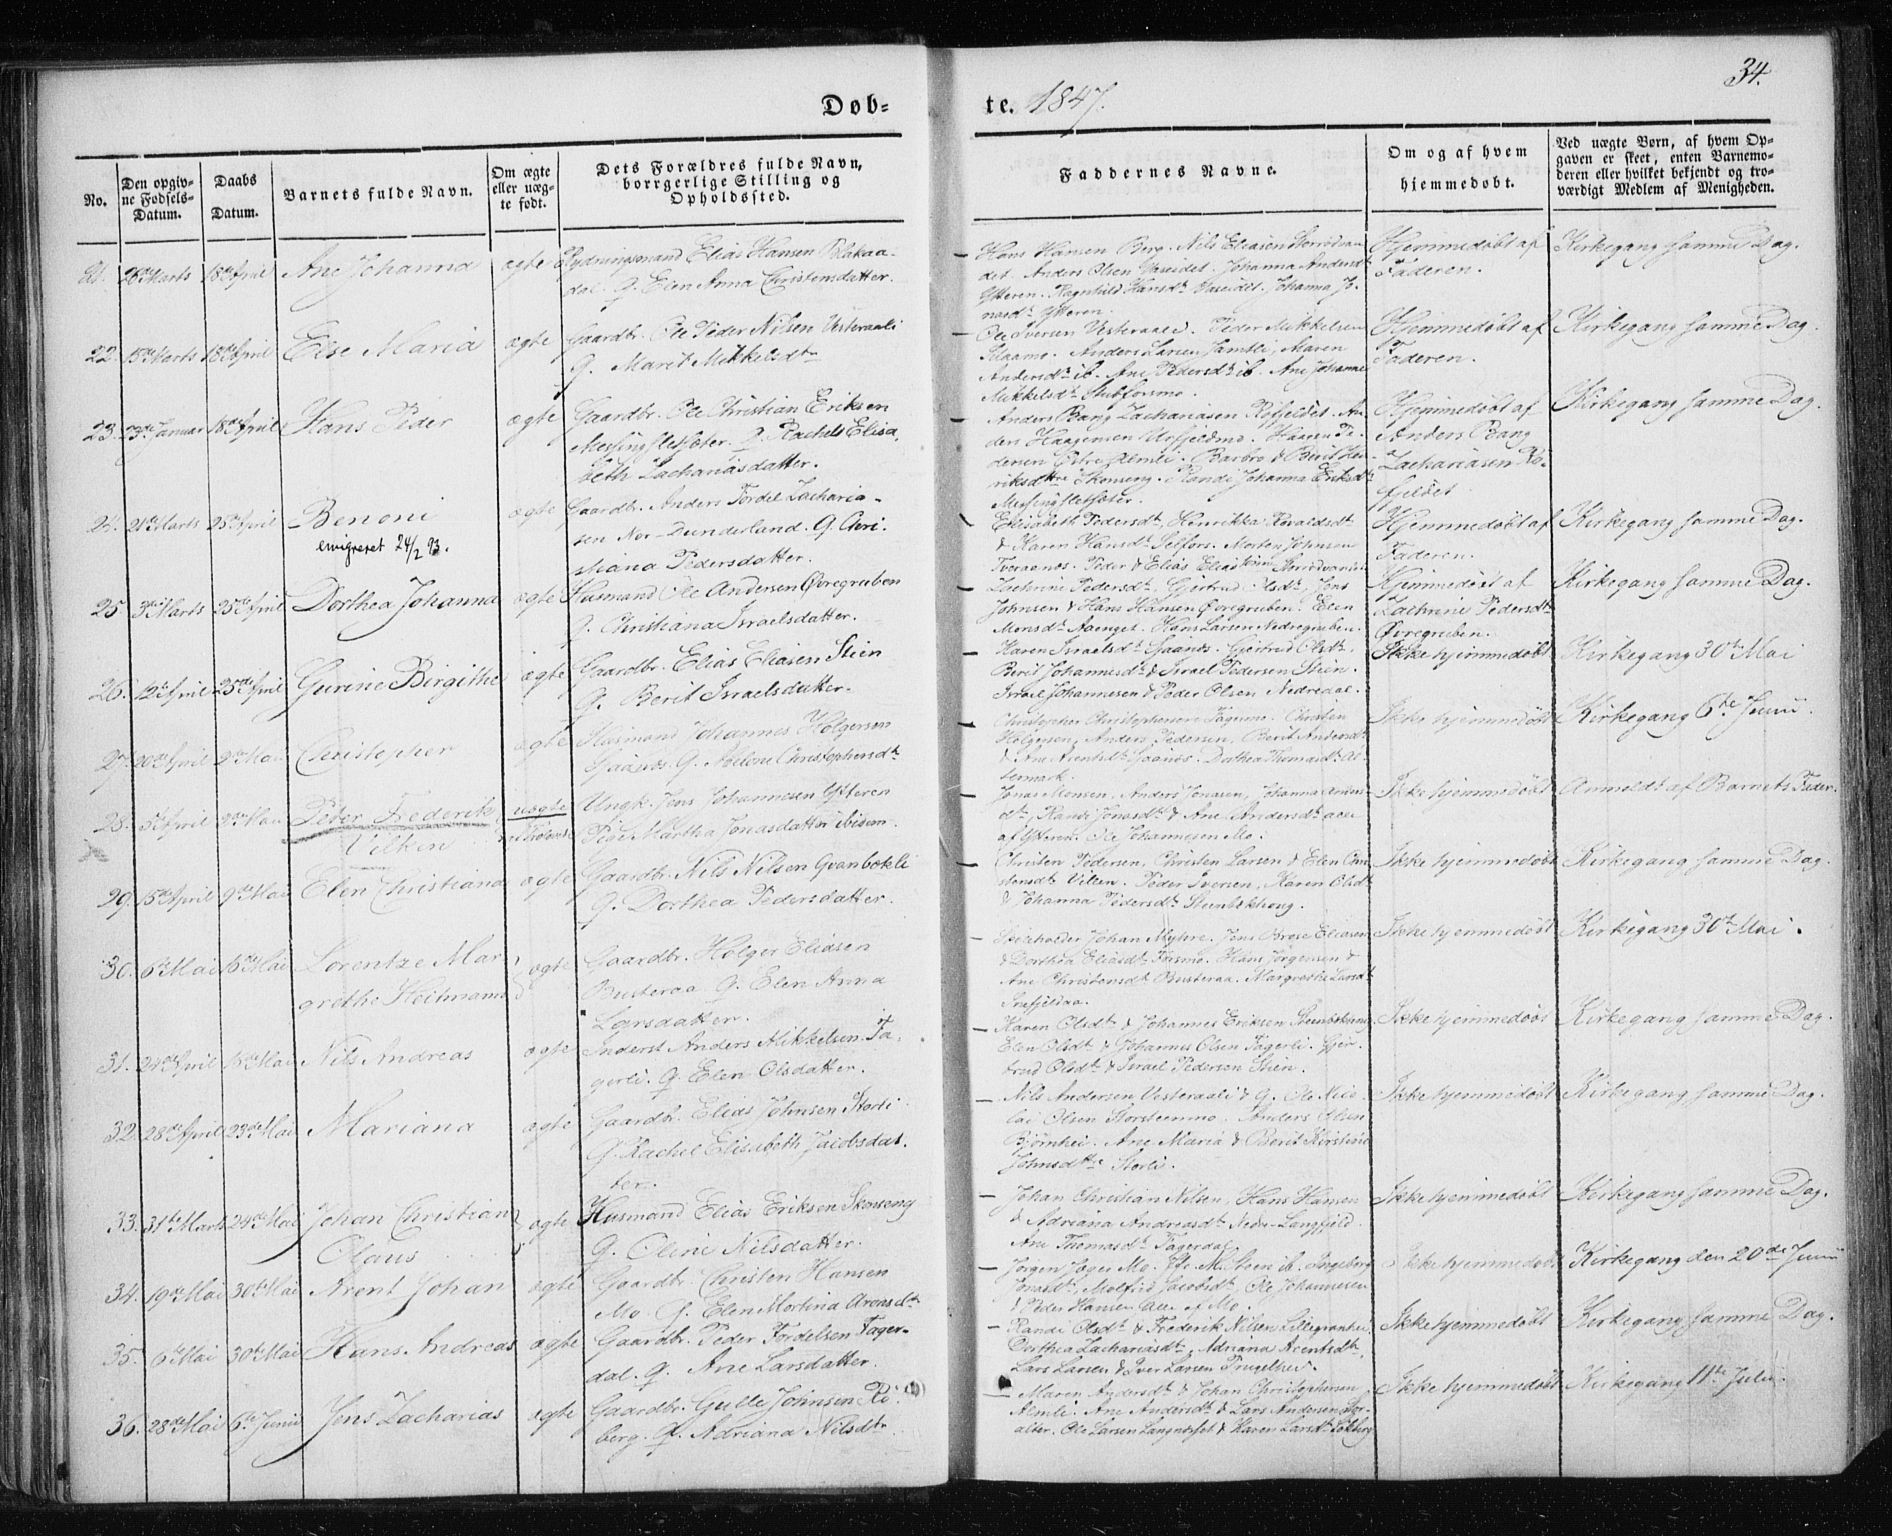 34.
Døb=
te. 1847.
No.
Den opgiv=
ne Fødsels=
Datum.
Daabs
Datum.
Barnets fulde Navn.
Om ægte
eller uæg=
te født.
Dets Forældres fulde Navn,
borrgerlige Stilling og
Opholdssted.
Faddernes Navne.
Om og af hvem
hjemmedøbt.
Ved uægte Børn, af hvem Op=
gaven er skeet, enten Barnemo=
deren eller hvilket bekjendt og tro=
værdigt Medlem af Menigheden.
21. 26de Marts 18de April Ane Johanna ægte Rydningsmand Elias Hansen Blakaa-
dal. G. Elen Anna Christensdatter.
Hans Hansen Berg. Nils Eliasen Storrødvan
det. Anders Olsen Vaseidet. Johanna Andersdt
Ytteren. Ragnhild Hansdt Vaseidet. Johanna Jo-
nasdt Ytteren.
Hjemmedøbt af
Faderen.
Kirkegang samme Dag.
22. 15de Marts 18de April Else Maria ægte Gaardbr. Ole Peder Nilsen Vesteraali
G. Marit Mikkelsdtr
Ole Iversen Vesteraali. Peder Mikkelsen
Anders Larsen Jamtli, Maren
Andersdt ib. Ane Pedersdt ib. Ane Johanna
Mikkelsdt Stubforsmo.
Hjemmedøbt af
Faderen.
Kirkegang samme Dag.
23. 23de Januar 18de April Hans Peder ægte Gaardbr. Ole Christian Eriksen
Messingsletsæter. G. Rachel Elisa-
beth Zachariasdatter.
Anders Bang Zachariasen Røfjeldet. An
ders Haagensen Urfjeldmo. Haagen Pe-
dersen Østre Almli. Barbro & Berit Hen-
riksdttre Skonseng. Randi Johanna Eriksdt
Messingsletsæter.
Hjemmedøbt af
Anders Bang
Zachariasen Rø-
fjeldet
Kirkegang samme Dag.
24. 21de Marts 25de April Benoni ægte Gaardbr. Anders Tordel Zacharia-
emigreret 24/2 93.
sen Nor-Dunderland. G. Chri-
stiana Pedersdatter.
Elisabeth Pedersdt, Henrikka
& Karen Hansdt Selfors. Morten Johnsen
Tveraanes. Peder & Elias
Hjemmedøbt af
Faderen.
Kirkegang samme Dag.
25. 3de Marts 25de April Dorthea Johanna ægte Husmand Ole Andersen Øvregruben
G. Christiana Israelsdatter.
Zachrine Pedersdt, Gjertrud Olsdt, Jens
Johnsen & Hans Hansen Øvregruben. Elen
Monsdt Aaenget. Hans Larsen Nedregruben.
Hjemmedøbt af
Zachrine Pedersdt
Øvregruben.
Kirkegang samme Dag.
26. 12te April 25de April Gurine Birgithe ægte Gaardbr. Elias Eliasen Stien
G. Berit Israelsdatter.
Karen Israelsdt Gaanes. Gjertrud Olsdt.
Berit Johannesdt & Israel Pedersen Stien.
Israel Johannesen & Peder Olsen Nedredal.
Ikke hjemmedøbt
Kirkegang 30te Mai
27. 20de April 9de Mai Christopher ægte Husmand Johannes Holgersen
Gaanes. G. Christophersdt
Christopher Christophersen Christen
Holgersen, Anders Pedersen, Berit Andersdt
& Ane Gaanes. Dorthea Thomasdt
Ikke hjemmedøbt
Kirkegang 6te Junii.
28. 5te April 9de Mai Peter Frederik
Vilken
uægte
Ungk. Jens Johannesen Ytteren
Pige Martha Jonasdatter ibidem.
Jonas Monsen, Anders Jonasen, Johanna Anders-
dt, Randi Jonasdt & Ane Andersdt alle
af Ytteren. Ole Johannesen Mo.
Ikke hjemmedøbt
Anmeldt af Barnets Fader.
29. 15de April 9de Mai Elen Christiana ægte Gaardbr. Nils Nilsen Granbokli
G. Dorthea Pedersdatter.
Christen Pedersen, Christen Larsen & Elen Chri
stensdt Peder Iversen, Karen Olsdt
& Johanna Pedersdt Steenbekhong.
Ikke hjemmedøbt
Kirkegang samme Dag.
30. 6te Mai 16de Mai Lorentze Mar-
grethe Heitmann
ægte
Gaardbr. Holger Eliasen
Busteraa G. Elen Anna
Larsdatter.
Skoleholder Johan Myhre. Jens Eliasen
& Dorthea Eliasdt Hans Jørgensen &
Ane Christensdt Busteraa. Margrethe
Ikke hjemmedøbt
Kirkegang 30te Mai.
31. 24de April 16de Mai Nils Andreas ægte Inderst Anders Mikkelsen Fa-
gerli. G. Elen Olsdatter.
Karen Olsdt & Johannes Eriksen Steenbekhong
Elen Olsdt & Johannes Olsen Fagerli. Gjer-
trud Olsdt & Israel Pedersen Stien.
Ikke hjemmedøbt
Kirkegang samme Dag.
32. 28de April 23de Mai Mariana ægte Gaardbr. Elias Johnsen Storli
G. Rachel Elisabeth Jacobsdat-
ter.
Nils Andersen Vesteraali & G. Ole Nico-
lai Olsen Storsteenmo. Anders Olsen
Bjørnhei. Ane Maria & Berit Kirstine
Johnsdttre Storli.
Ikke hjemmedøbt
Kirkegang samme Dag.
33. 31te Marts 24de Mai Johan Christian
Olaus
ægte Husmand Elias Eriksen Skonseng
G. Oline Nilsdatter.
Johan Christian Nilsen, Hans Hansen
& Adriana Andreasdt Nedre-Langfjeld.
Ane Thomasdt Fagerdal.
Ikke hjemmedøbt
Kirkegang samme Dag.
34. 19de Mai 30te Mai Arent Johan ægte Gaardbr. Christen Hansen
Mo. G. Elen Martina Aronsdtr
Jørgen Jæger Mo. ib. Ingeborg
Jonasdt, Molfrid Jacobsdt, Ole Johannesen
& Peder Hansen alle af Mo.
Ikke hjemmedøbt
Kirkegang den 20de Junii
35. 6te Mai 30te Mai Hans Andreas ægte Gaardbr. Peder Tordelsen Fager-
dal. G. Ane Larsdatter.
Randi Olsdt & Frederik Nilsen
Dorthea Zachariasdt, Adriana Arentsdt,
Lars Larsen & Iver Larsen
Ikke hjemmedøbt
Kirkegang samme Dag.
36. 28de Mai 6te Junii Jens Zacharias ægte Gaardbr. Gulle Johnsen Rø-
berg. G. Adriana Nilsdtr
Maren Andersdt & Johan Christophersen
Almli. Ane Andersdt & Lars Andersen
Ole Larsen & Karen Larsdt
Ikke hjemmedøbt
Kirkegang 11te Julii.